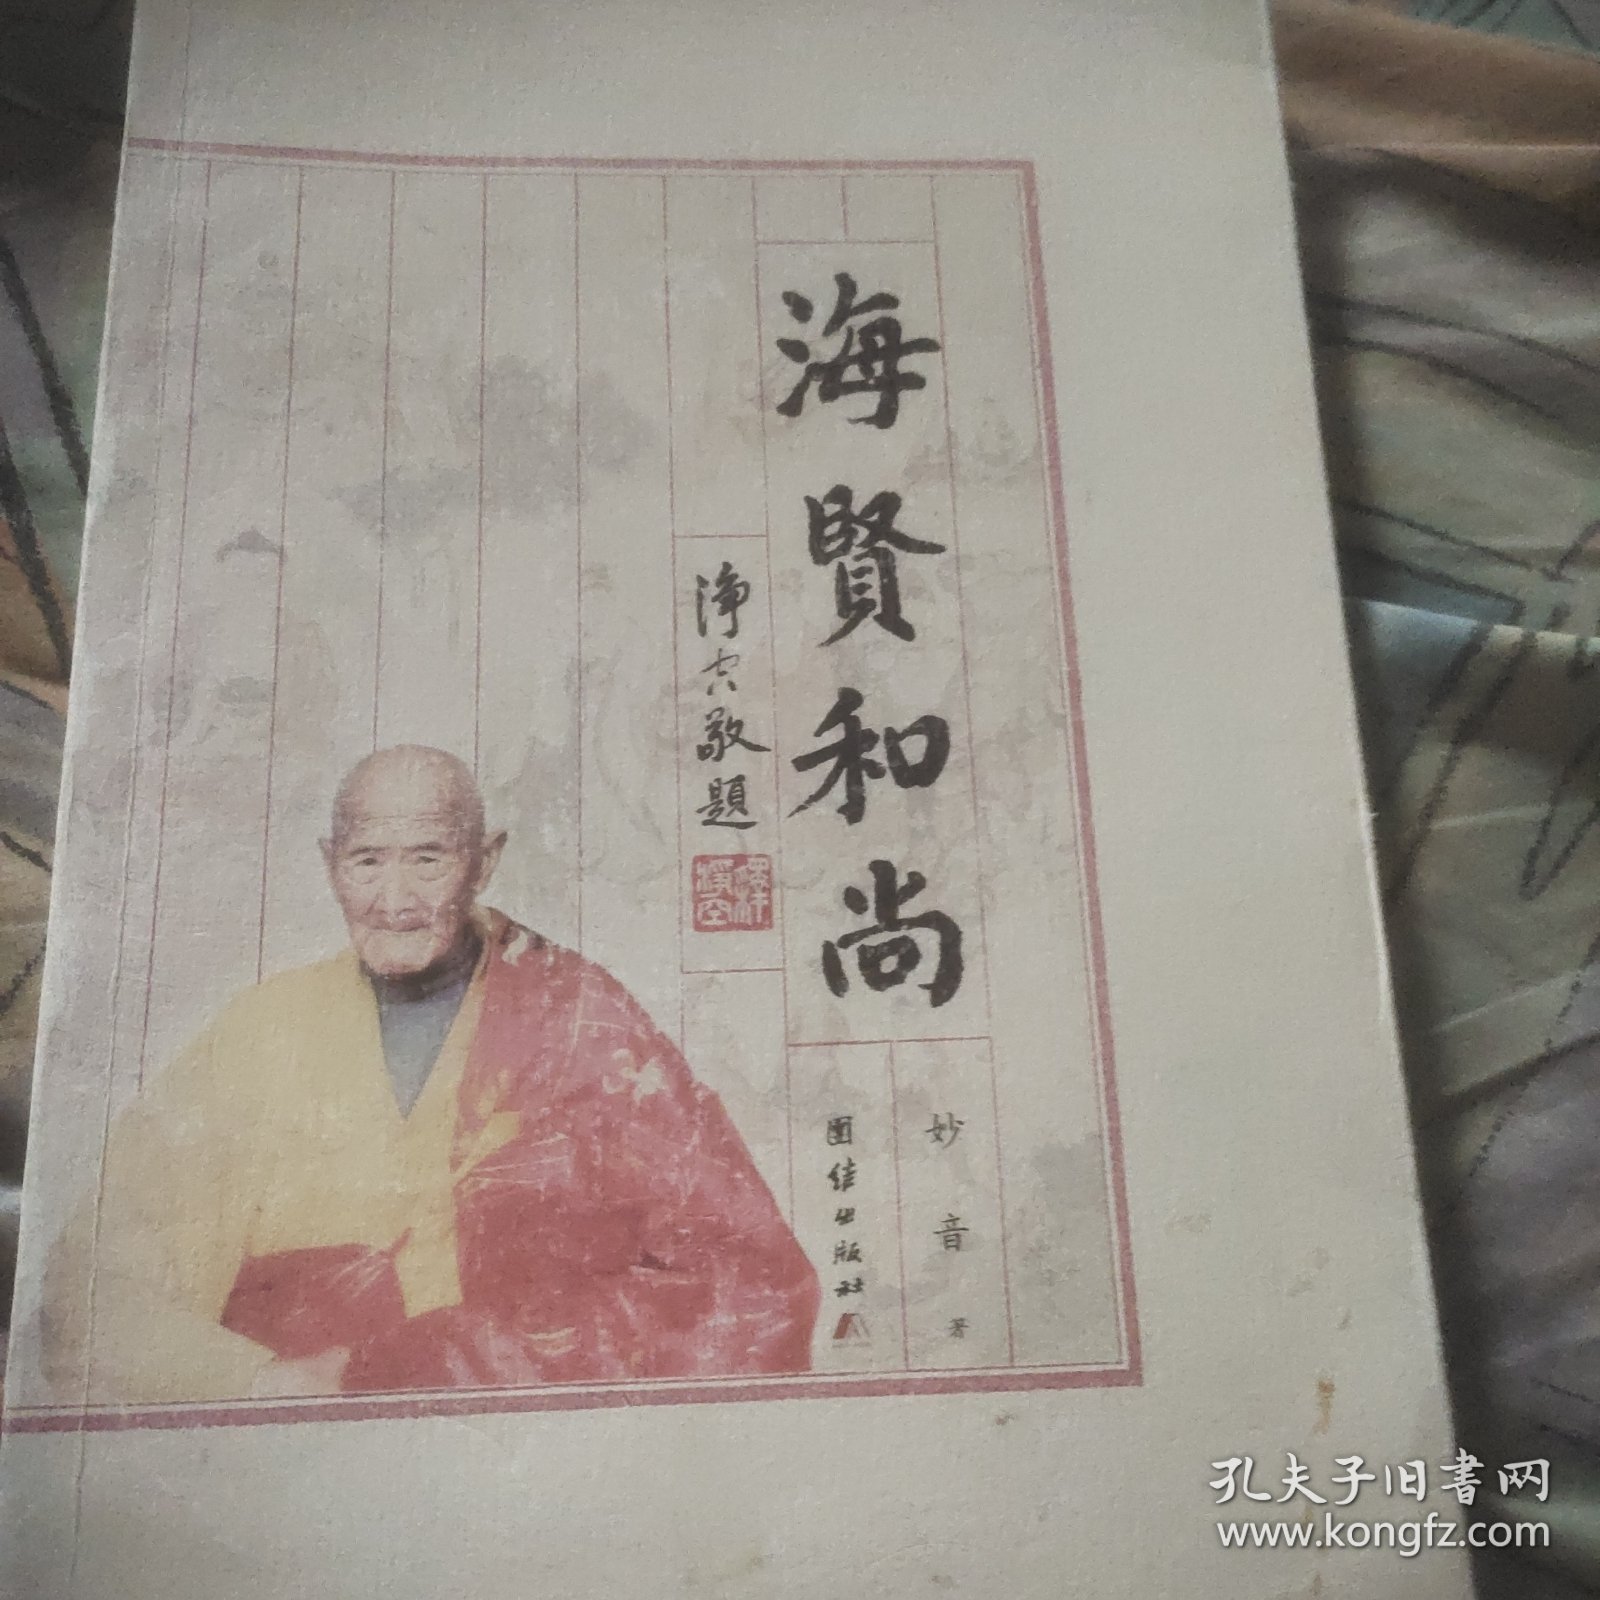 海賢和尚
淨空敬題
釋淨空
妙音 著
团结出版社
孔夫子旧书网
www.kongfz.com